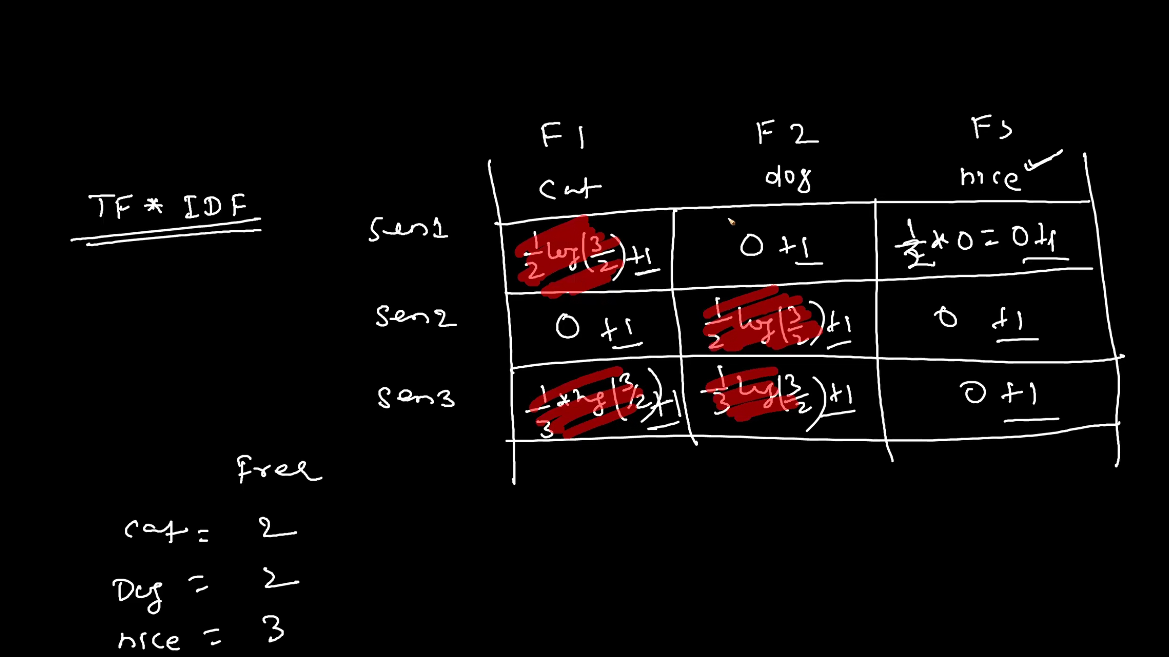 F1 F2 F3
cat dog nice
TF * IDF
Sen1 1/2 log(3/2)+1 0 +1 1/2 * 0 = 0+1
Sen2 0 +1 1/2 log(3/2)+1 0 +1
Sen3 1/3 * log(3/2)+1 1/3 log(3/2)+1 0 +1
Freq
cat = 2
Dog = 2
nice = 3